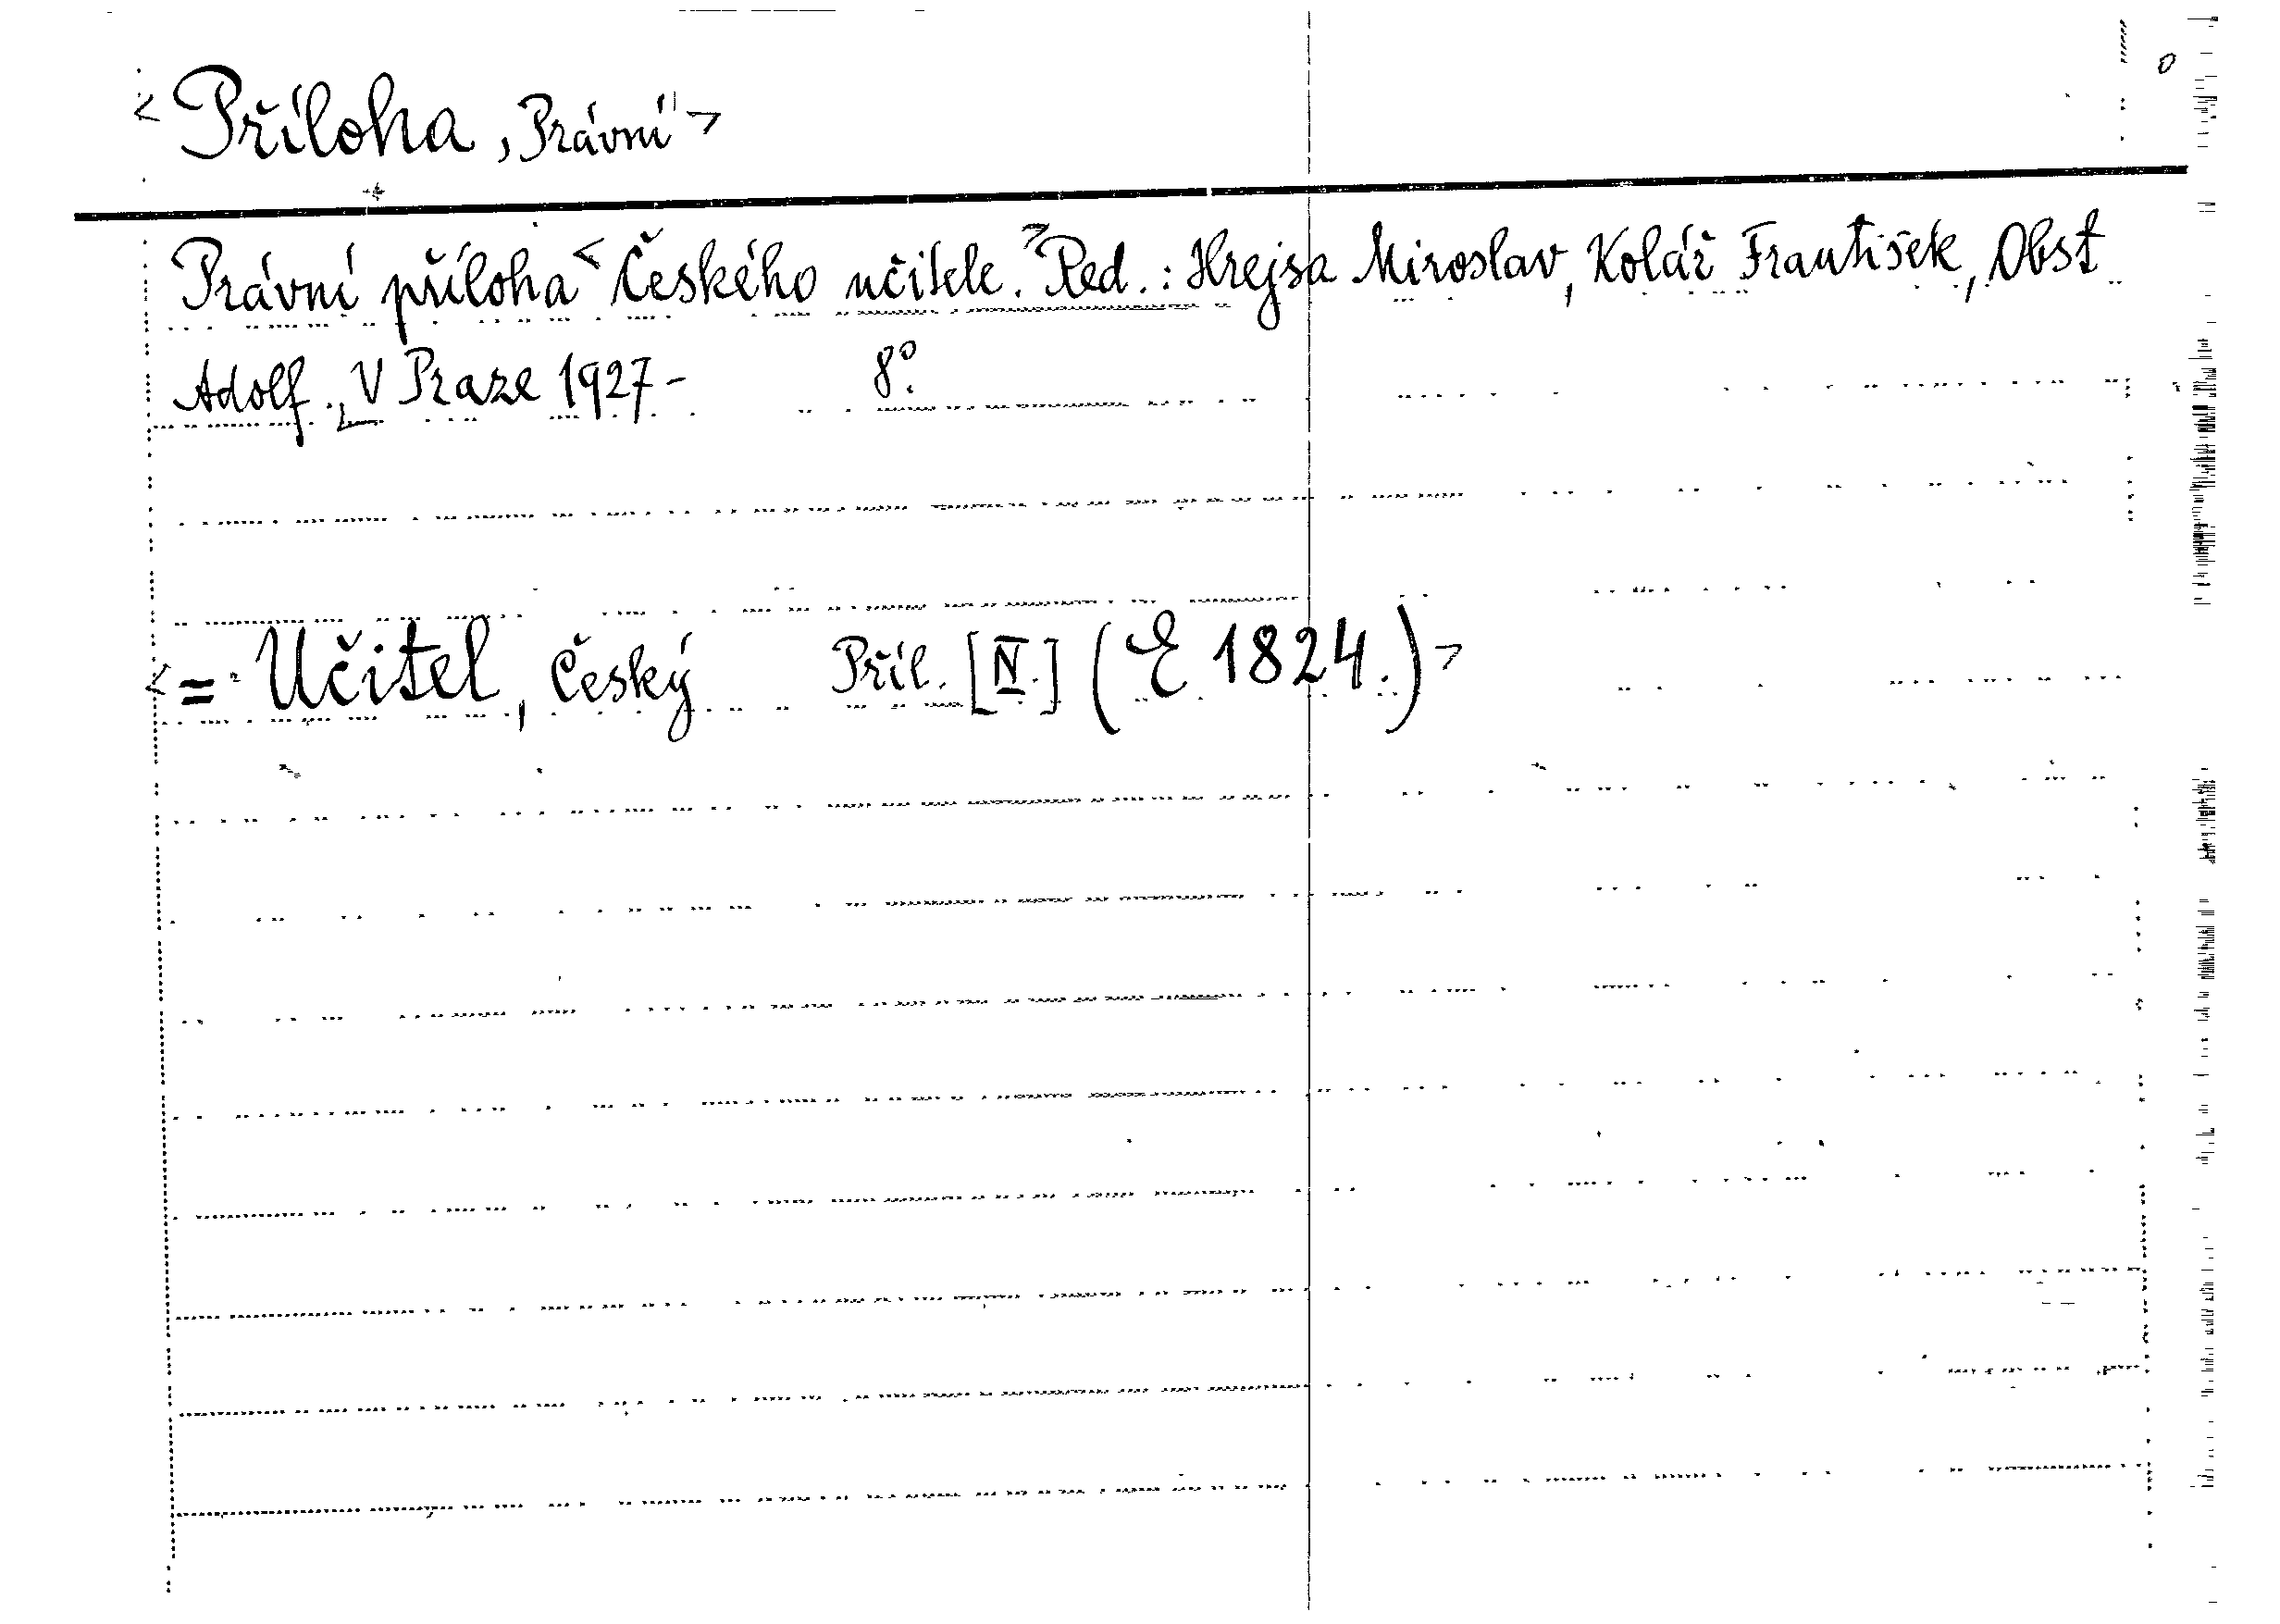 <Příloha, Právní>
Právní příloha <Českého učitele.> Red.: Hrejsa Miroslav, Kolář František, Obst
Adolf. V Praze 1927- 8°.
<= Učitel, Český Příl. [IV.] (E 1824.)>